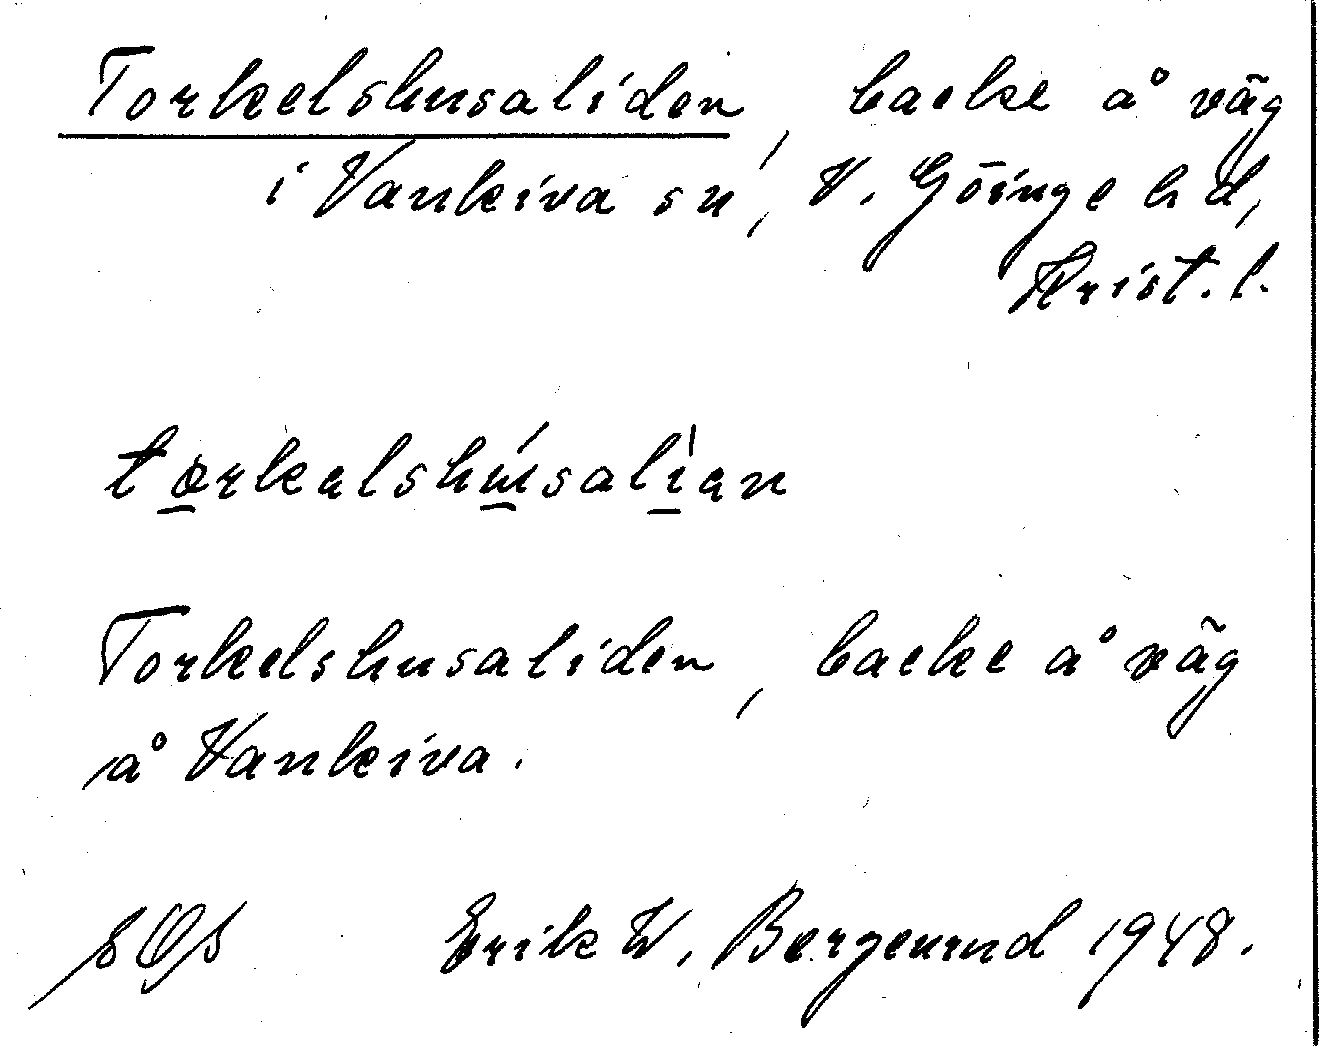 Torkelshusaliden, backe å väg
i Vankiva sn, V. Göinge hd,
Krist. l.
tơrkəlshúsalìən
Torkelshusaliden, backe å väg
å Vankiva.
SOS Erik W. Bergeund 1948.